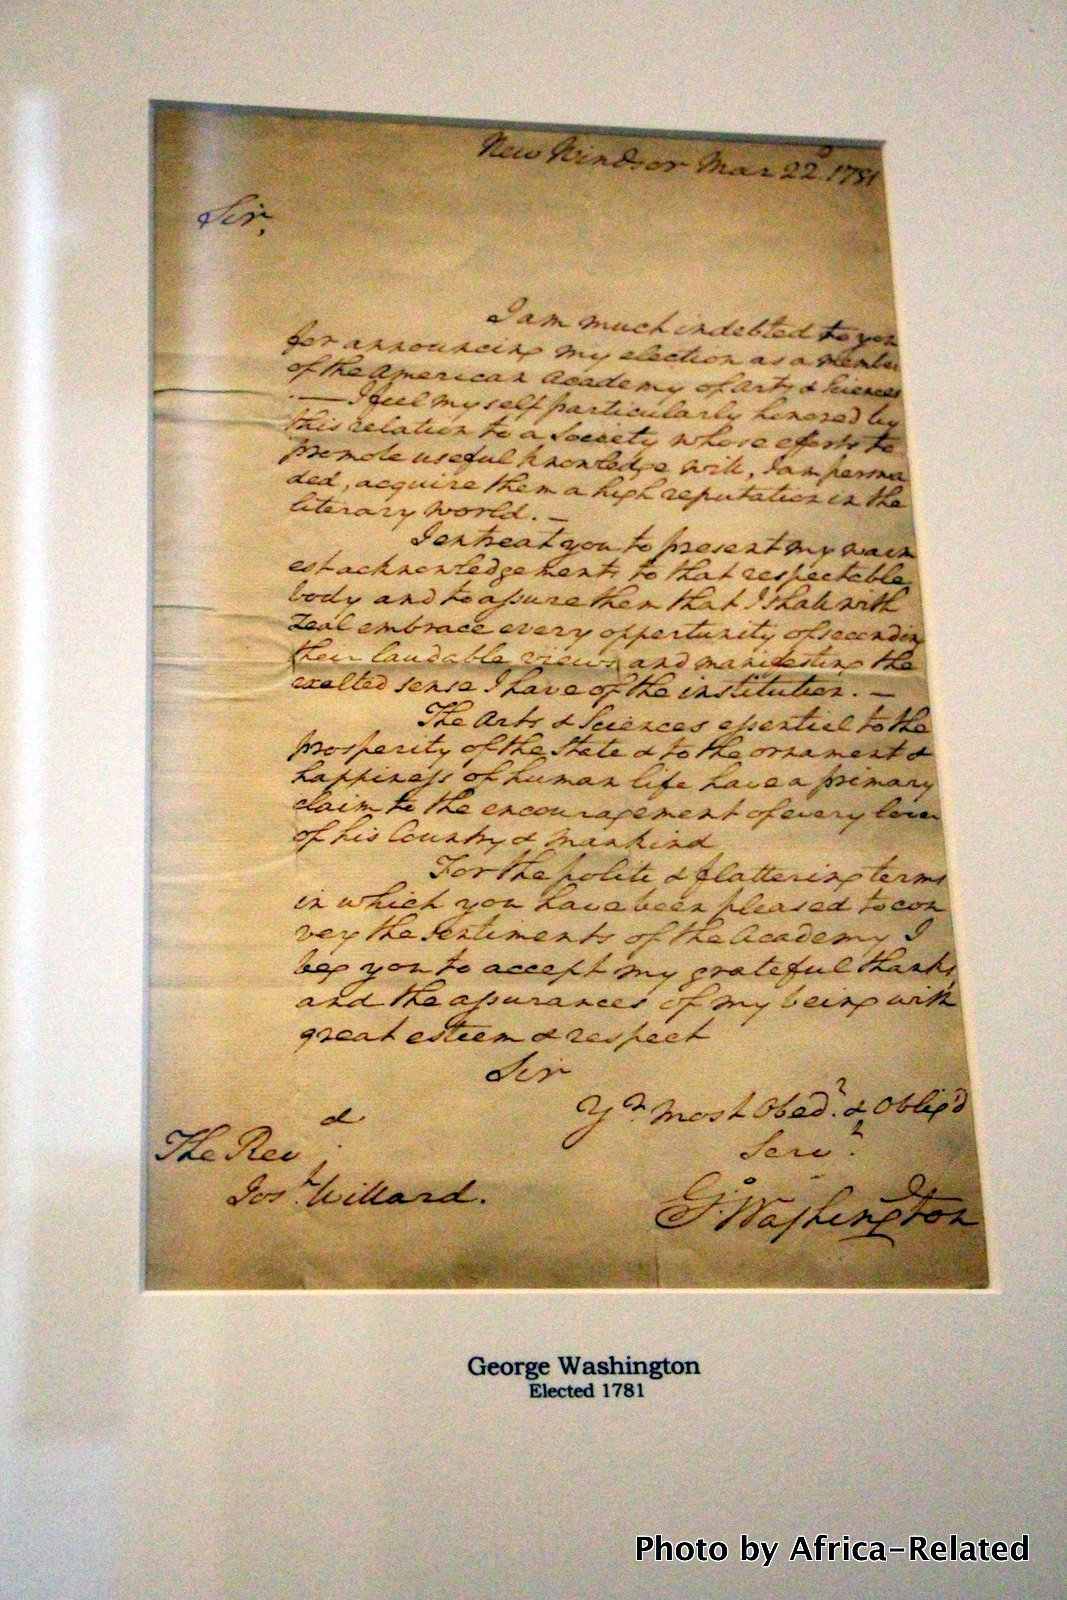 New Windsor Mar 22d 1781
Sir,
I am much indebted to you
for announcing my election as a Member
of the American Academy of Arts & Sciences
. — I feel myself particularly honored by
this relation to a Society whose efforts to
promote useful knowledge will, I am persua
ded, acquire them a high reputation in the
literary World. —
I entreat you to present my warm
est acknowledgements to that respectable
body and to assure them that I shall with
Zeal embrace every oppertunity of seconding
their laudable views and manifesting the
exalted sense I have of the institution. —
The Arts & Sciences essential to the
prosperity of the State & to the ornament &
happiness of human life have a primary
claim to the encouragement of every lover
of his Country & mankind
For the polite & flattering terms
in which you have been pleased to con
vey the Sentiments of the Academy I
beg you to accept my grateful thanks,
and the assurances of my being with
great esteem & respect
Sir
Yr. most Obedt. & Oblig'd
Servt.
The Revd.
Josh. Willard.
Go. Washington
George Washington
Elected 1781
Photo by Africa-Related